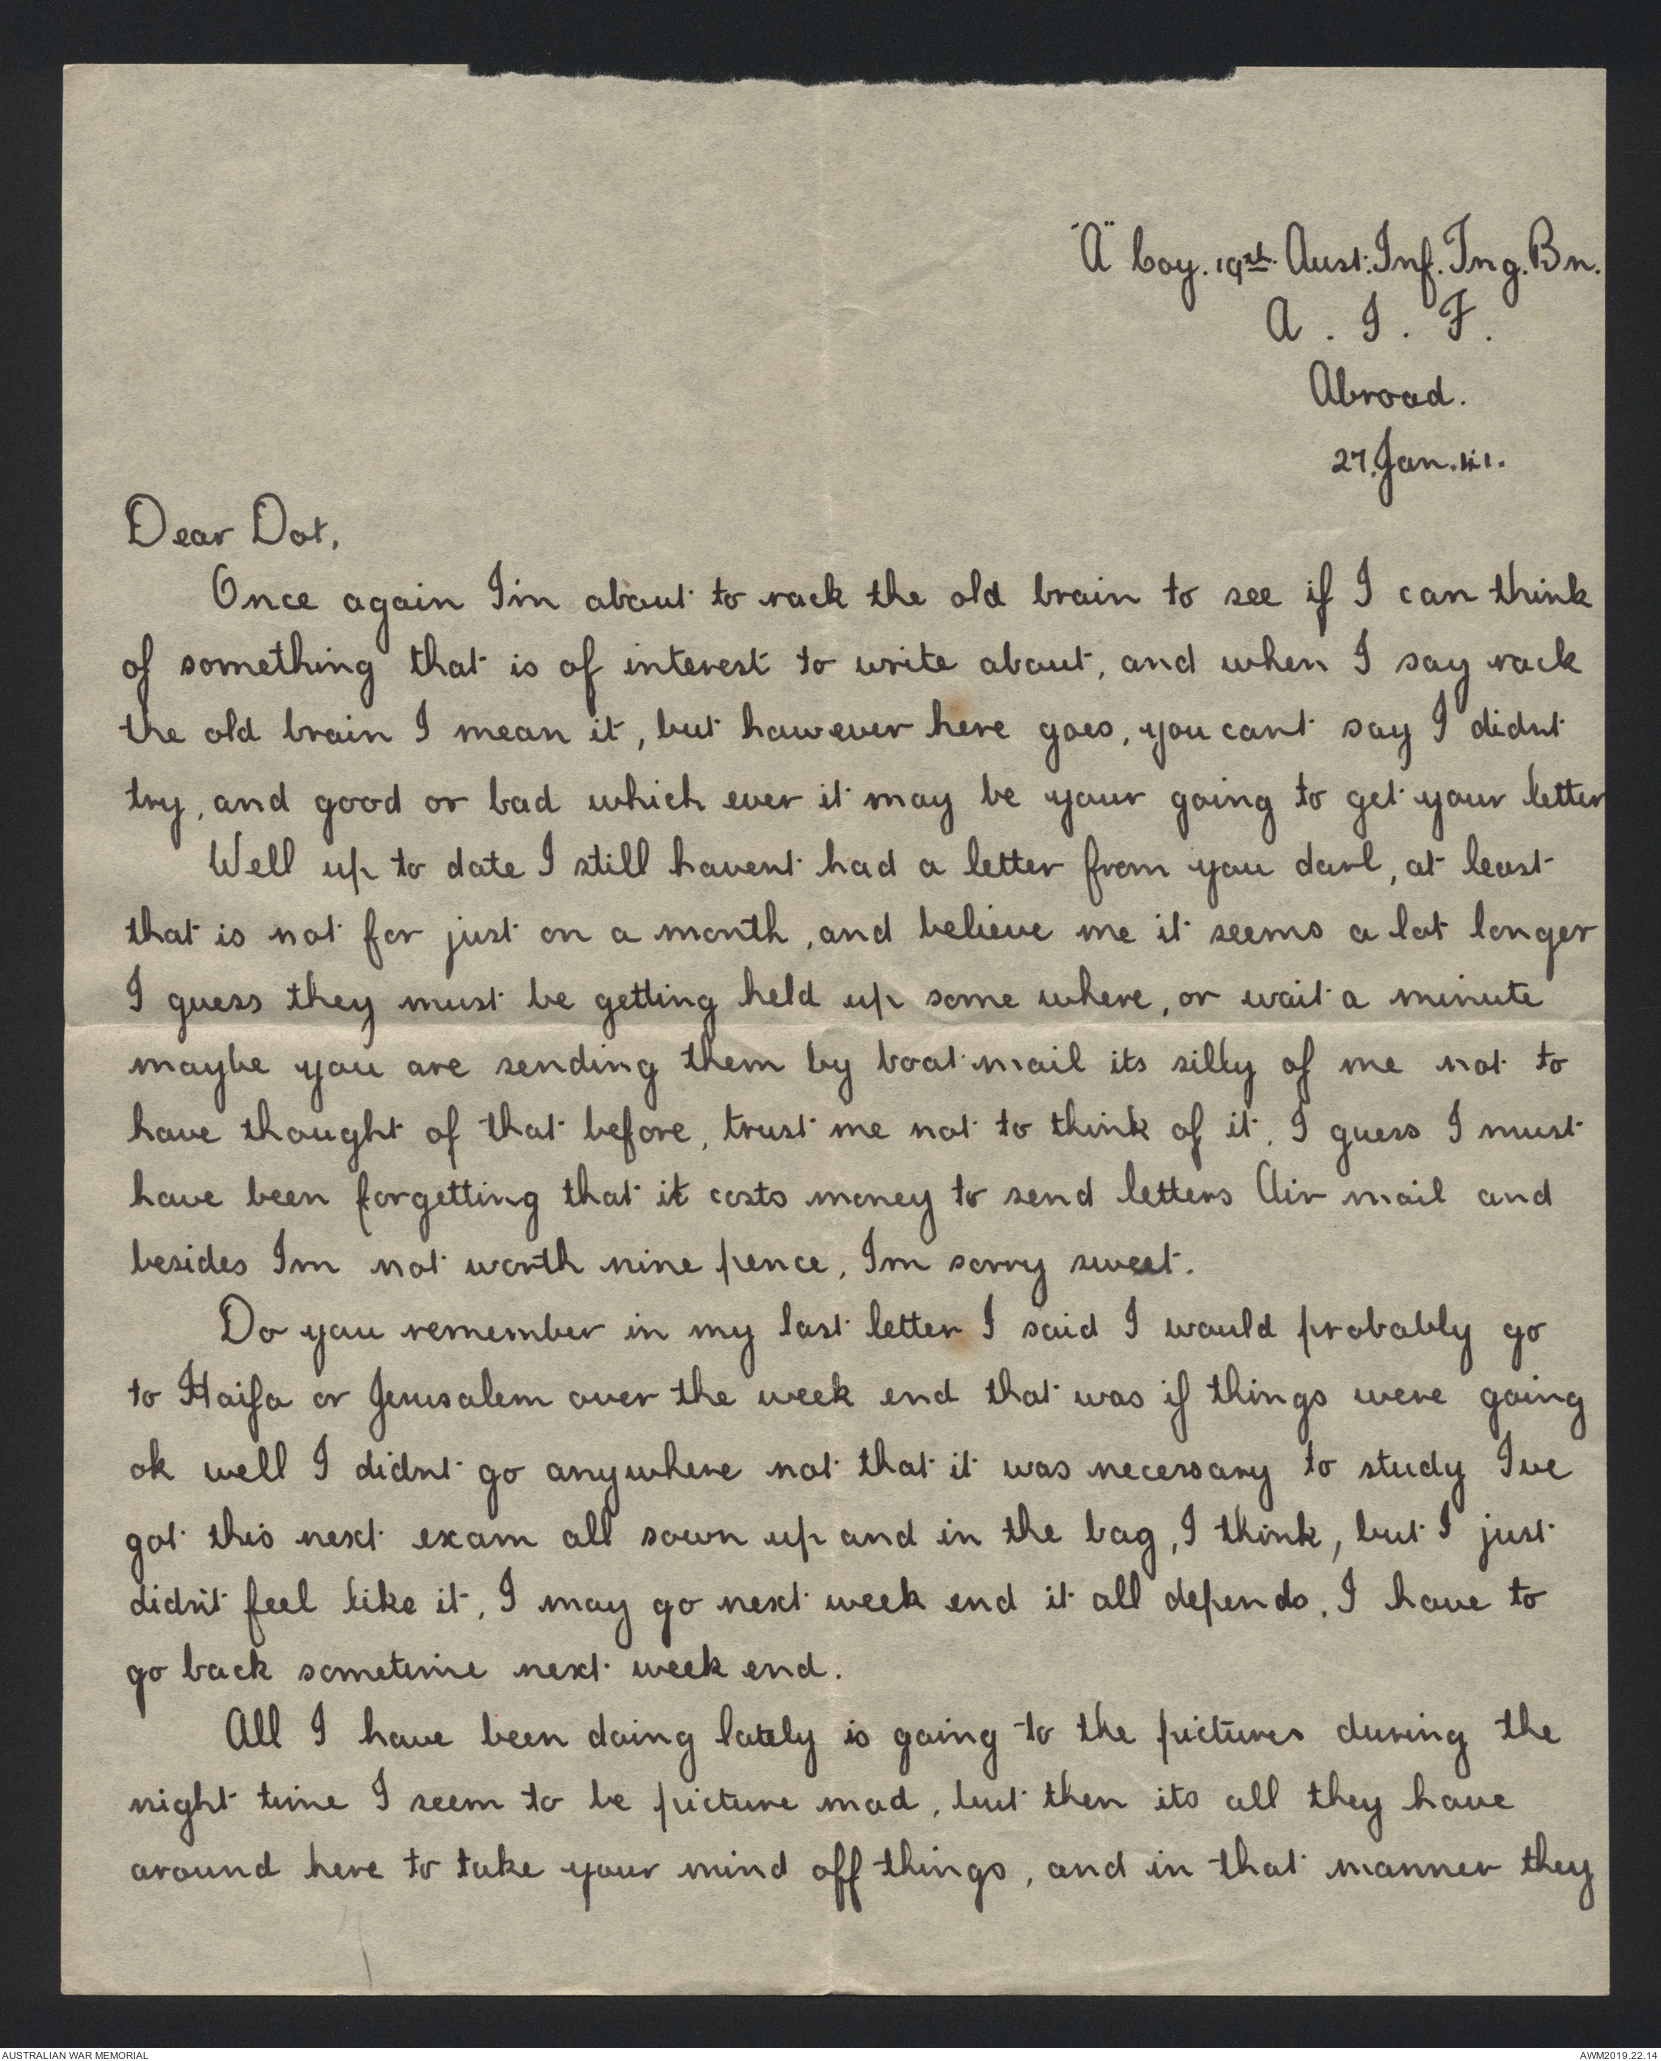 "A" Coy. 19th Aust. Inf. Tng. Bn.
A . I . F .
Abroad.
27.Jan.41.
Dear Dot,
Once again I'm about to rack the old brain to see if I can think
of something that is of interest to write about, and when I say rack
the old brain I mean it, but however here goes, you cant say I didnt
try, and good or bad which ever it may be your going to get your letter
Well up to date I still havent had a letter from you darl, at least
that is not for just on a month, and believe me it seems a lot longer
I guess they must be getting held up some where, or wait a minute
maybe you are sending them by boat mail its silly of me not to
have thought of that before, trust me not to think of it, I guess I must
have been forgetting that it costs money to send letters Air mail and
besides Im not worth nine pence, Im sorry sweet.
Do you remember in my last letter I said I would probably go
to Haifa or Jerusalem over the week end that was if things were going
ok well I didnt go anywhere not that it was necessary to study Ive
got this next exam all sown up and in the bag, I think, but I just
didn't feel like it, I may go next week end it all depends, I have to
go back sometime next week end.
All I have been doing lately is going to the pictures during the
night time I seem to be picture mad, but then its all they have
around here to take your mind off things, and in that manner they
AUSTRALIAN WAR MEMORIAL
AWM2019.22.14